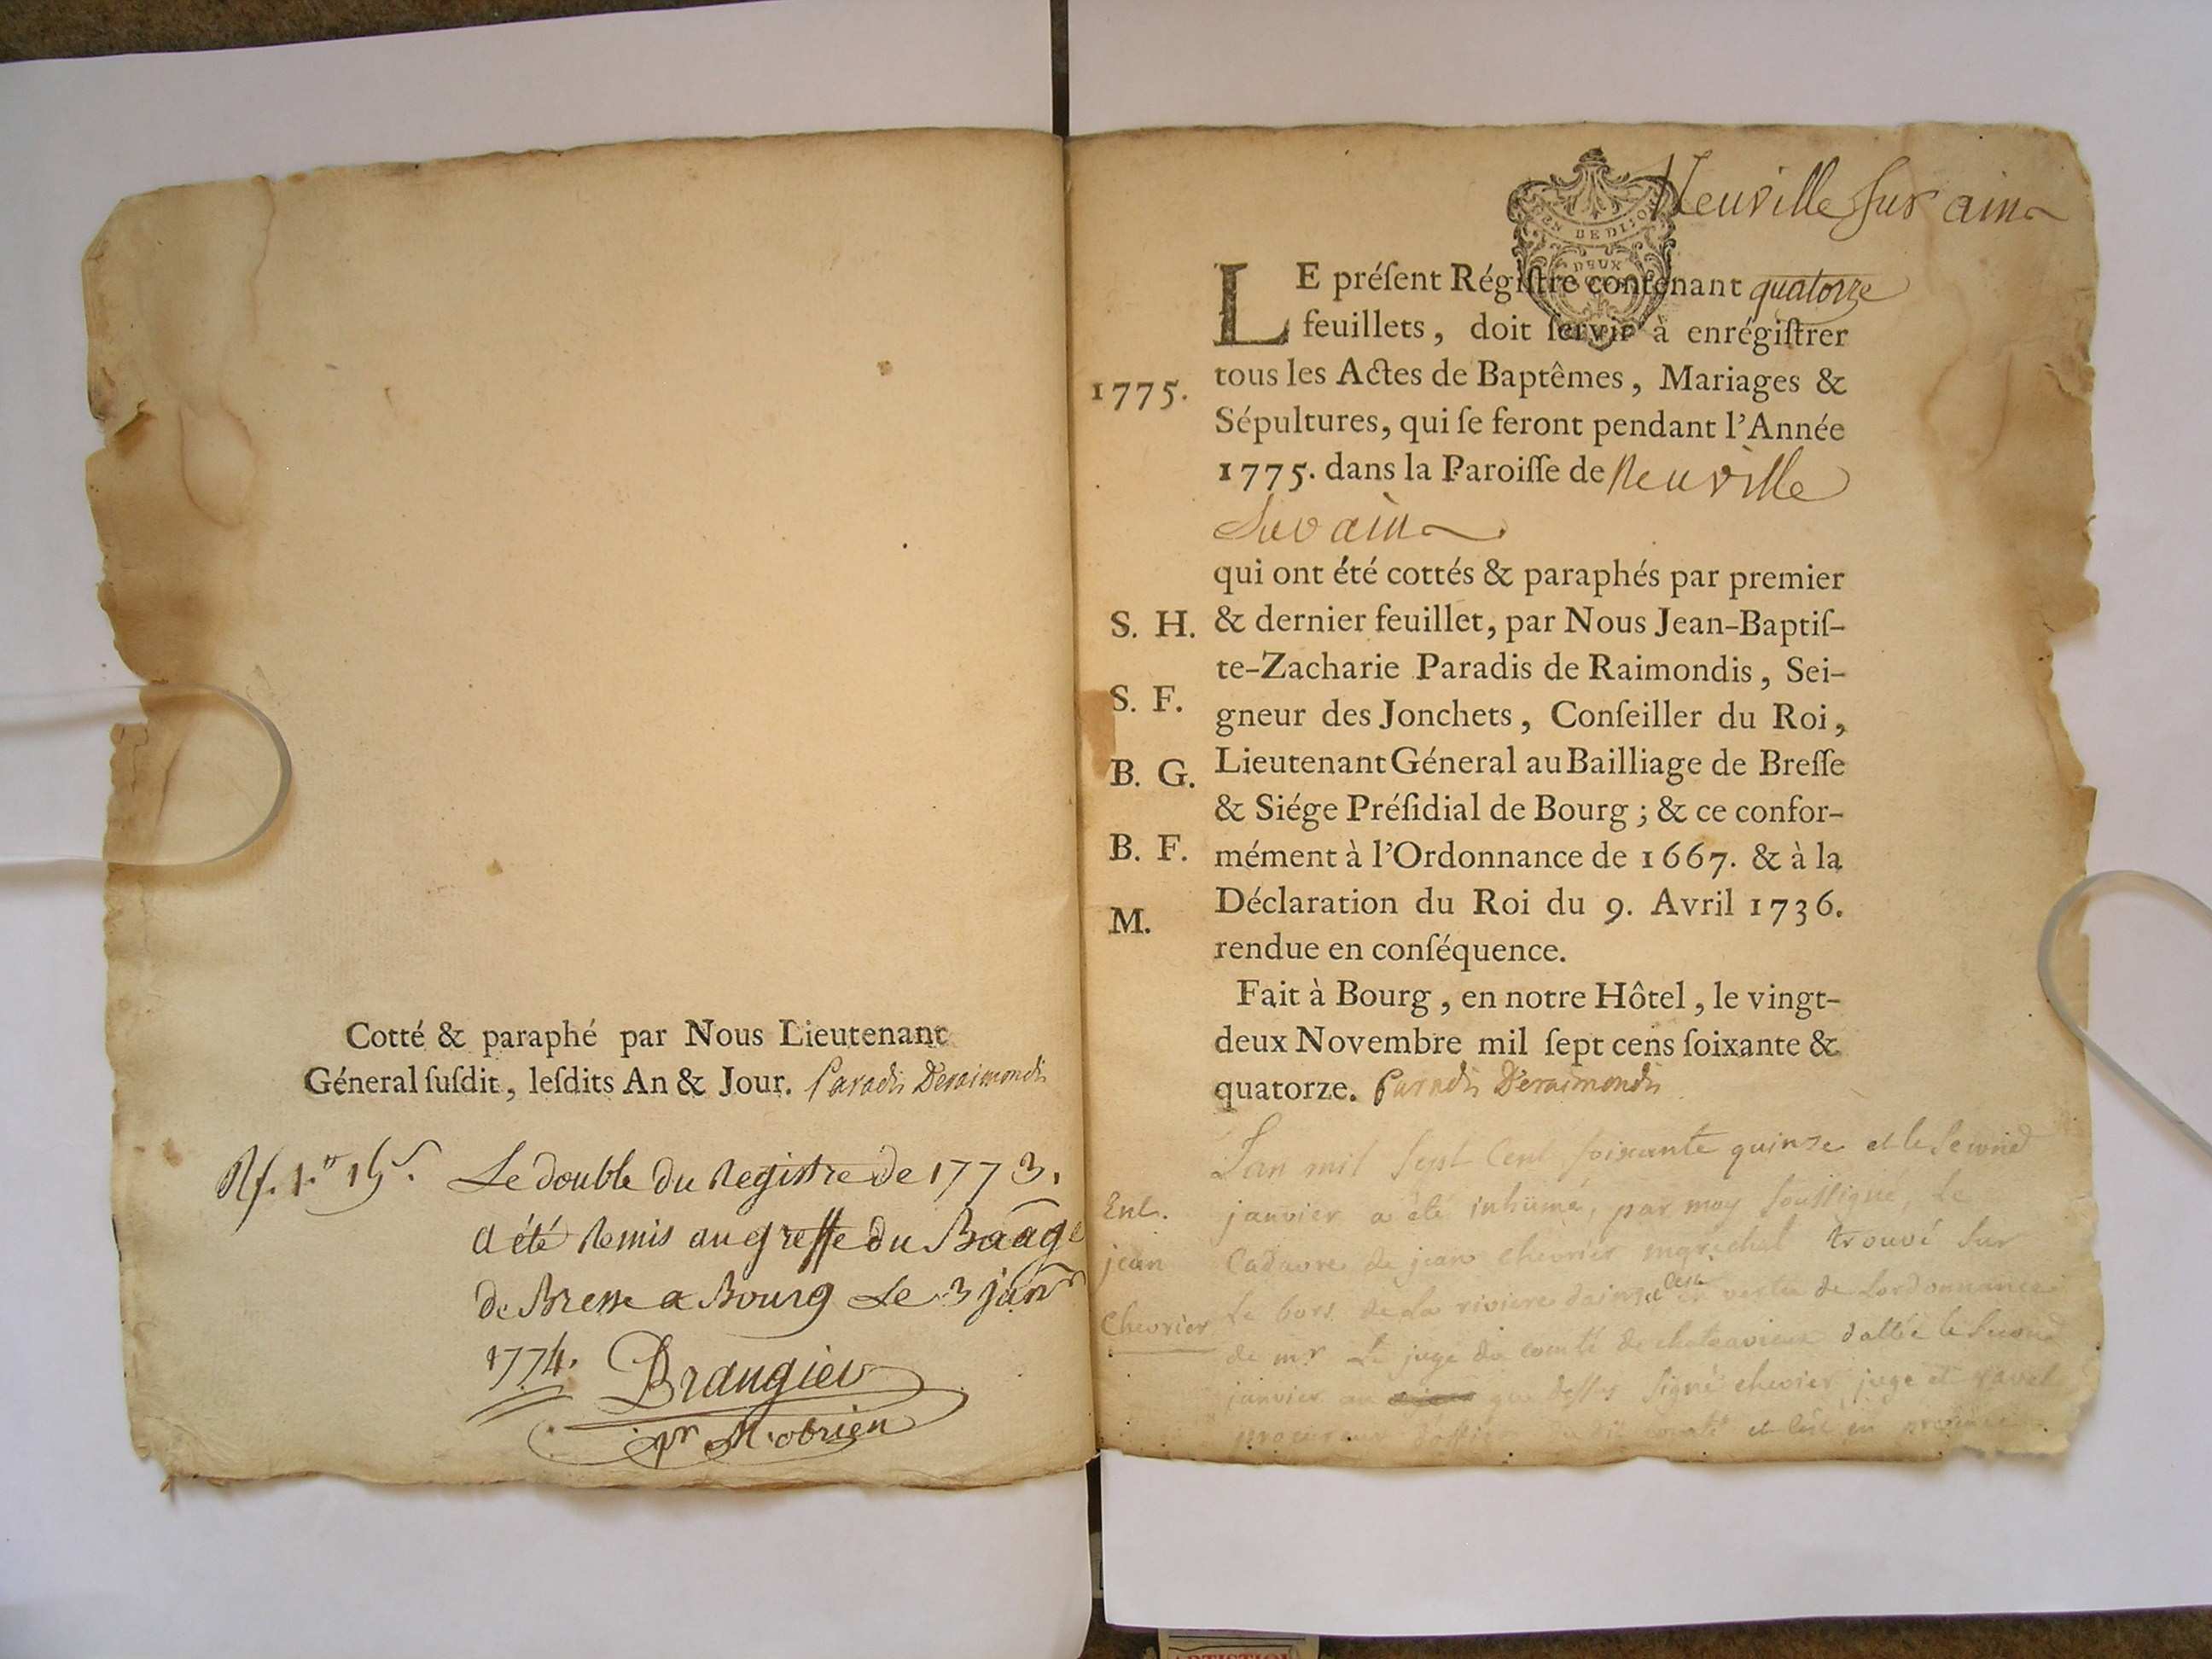 Cotté & paraphé par Nous Lieutenant
Géneral ſuſdit, leſdits An & Jour. Paradis Deraimondis
Le double du Registre de 1773.
a été Remis au greffe du Baage
de Bresse a Bourg Le 3 janr
1774. Brangier
pr M. obrien
Neuville sur ain
DEUX
LE préſent Régiſtre contenant quatorze
feuillets, doit ſervir à enrégiſtrer
tous les Actes de Baptêmes, Mariages &
1775.
Sépultures, qui ſe feront pendant l'Année
1775. dans la Paroiſſe de Neuville
Sur ain
qui ont été cottés & paraphés par premier
S. H. & dernier feuillet, par Nous Jean-Baptiſ-
te-Zacharie Paradis de Raimondis, Sei-
S. F. gneur des Jonchets, Conſeiller du Roi,
B. G. Lieutenant Géneral au Bailliage de Breſſe
& Siége Préſidial de Bourg; & ce confor-
B. F. mément à l'Ordonnance de 1667. & à la
M. Déclaration du Roi du 9. Avril 1736.
rendue en conſéquence.
Fait à Bourg, en notre Hôtel, le vingt-
deux Novembre mil ſept cens ſoixante &
quatorze. Paradis Deraimondis
Lan mil sept Cent soixante quinze et le Second
Ent. janvier a été inhumé, par moy soussigné, Le
jean Cadavre de jean chevrier marechal trouvé sur
Chevrier Le bors de La riviere dains en vertu de Lordonnance
de mr Le juge du comté de dattée le Second
janvier an que dessus signé chevrier juge et ravet
procureur et